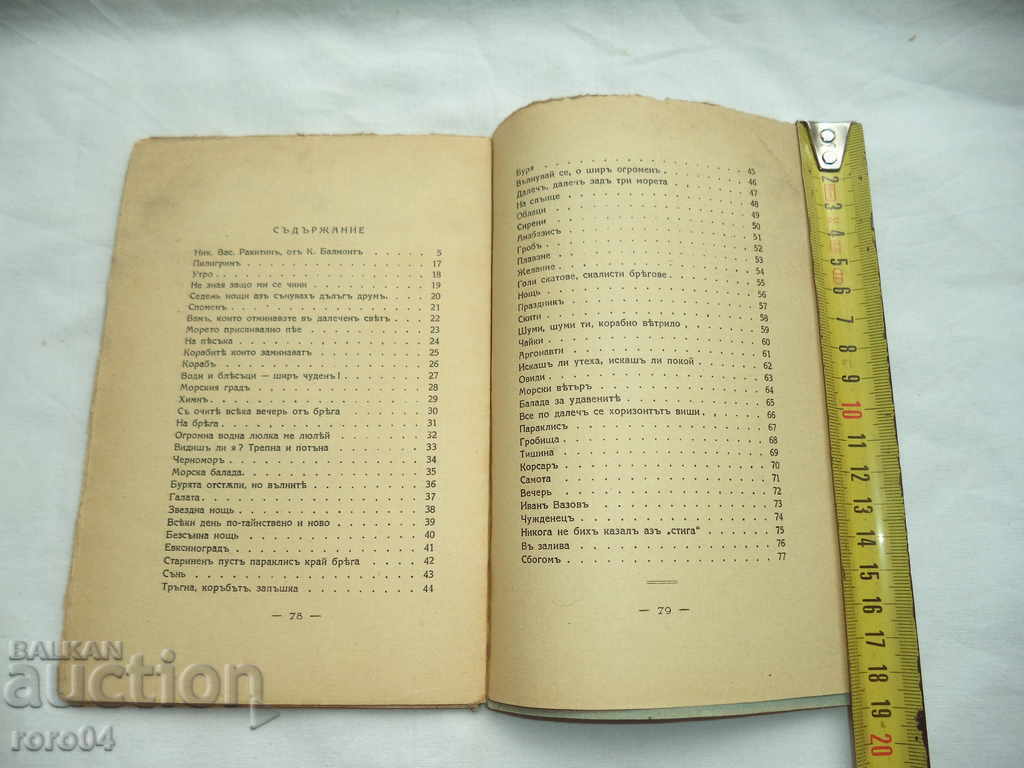 СЪДЪРЖАНИЕ
Ник. Вас. Ракитинъ, отъ К. Балмонтъ . . . . 5
Пилигримъ . . . . 17
Утро . . . . 18
Не зная защо ми се чини . . . . 19
Седемь нощи азъ сънувахъ дълъгъ друмъ. . . . . 20
Споменъ . . . . 21
Вамъ, които отминавате въ далеченъ светъ . . . . 22
Морето приспивално пѣе . . . . 23
На пѣсъка . . . . 24
Корабитѣ които заминаватъ . . . . 25
Корабъ . . . . 26
Води и блѣсъци — ширъ чуденъ! . . . . 27
Морския градъ . . . . 28
Химнъ . . . . 29
Съ очитѣ всѣка вечерь отъ брѣга . . . . 30
На брѣга . . . . 31
Огромна водна люлка ме люлѣй . . . . 32
Видишъ ли я? Трепна и потъна . . . . 33
Черноморъ . . . . 34
Морска балада . . . . 35
Бурята отстѫпи, но вълнитѣ . . . . 36
Галата . . . . 37
Звездна нощь . . . . 38
Всѣки день по-тайнствено и ново . . . . 39
Безсънна нощь . . . . 40
Евксиноградъ . . . . 41
Стариненъ пустъ параклисъ край брѣга . . . . 42
Сънь . . . . 43
Тръгна, коръбътъ, запъшка . . . . 44
— 78 —
Буря . . . . 45
Вълнувай се, о ширъ огроменъ . . . . 46
Далечъ, далечъ задъ три морета . . . . 47
На слънце . . . . 48
Облаци . . . . 49
Сирени . . . . 50
Анабазисъ . . . . 51
Гробъ . . . . 52
Плаване . . . . 53
Желание . . . . 54
Голи скатове, скалисти брѣгове . . . . 55
Нощь . . . . 56
Праздникъ . . . . 57
Скити . . . . 58
Шуми, шуми ти, корабно вѣтрило . . . . 59
Чайки . . . . 60
Аргонавти . . . . 61
Искашъ ли утеха, искашъ ли покой . . . . 62
Овиди . . . . 63
Морски вѣтъръ . . . . 64
Балада за удавенитѣ . . . . 65
Все по далечъ се хоризонтътъ виши . . . . 66
Параклисъ . . . . 67
Гробища . . . . 68
Тишина . . . . 69
Корсаръ . . . . 70
Самота . . . . 71
Вечерь . . . . 72
Иванъ Вазовъ . . . . 73
Чужденецъ . . . . 74
Никога не бихъ казалъ азъ „стига“ . . . . 75
Въ залива . . . . 76
Сбогомъ . . . . 77
— 79 —
2
3
4
5
6
7
8
9
10
11
12
13
14
15
16
17
18
19
20
BALKAN
auction
roro04